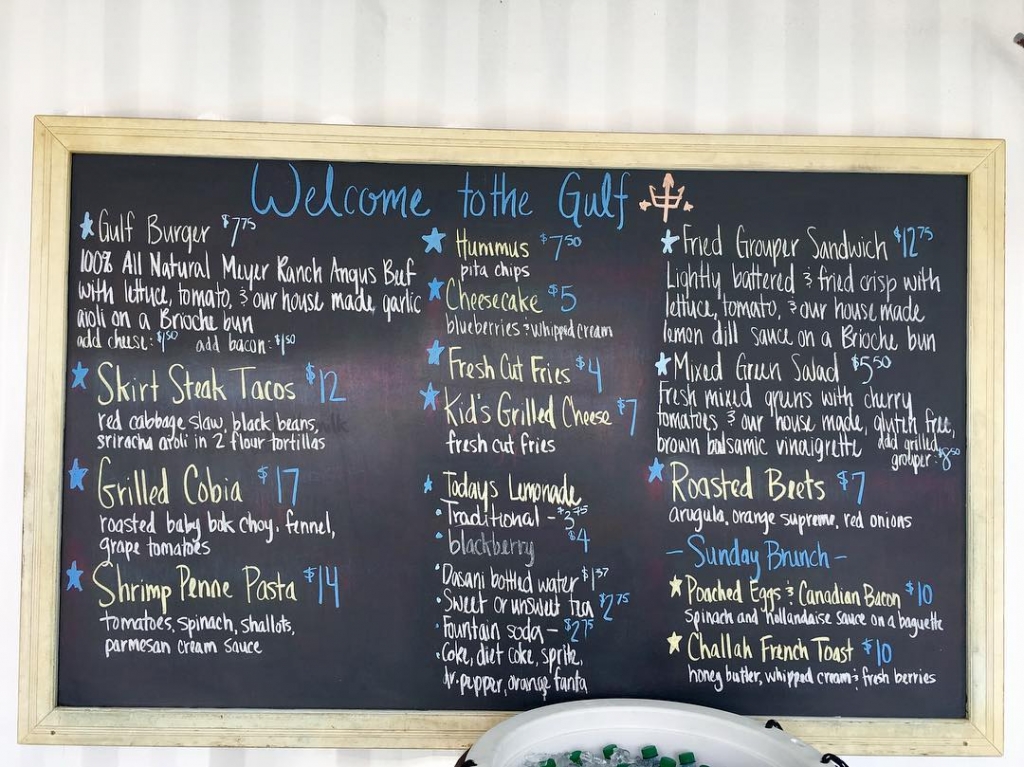 Welcome to the Gulf
Gulf Burger $7.75
100% All Natural Meyer Ranch Angus Beef
with lettuce, tomato, & our house made garlic
aioli on a Brioche bun
add cheese: $1.50 add bacon: $1.50
Skirt Steak Tacos $12
red cabbage slaw, black beans,
sriracha aioli in 2 flour tortillas
Grilled Cobia $17
roasted baby bok choy, fennel,
grape tomatoes
Shrimp Penne Pasta $14
tomatoes, spinach, shallots,
parmesan cream sauce
Hummus $7.50
pita chips
Cheesecake $5
blueberries & whipped cream
Fresh Cut Fries $4
Kid's Grilled Cheese $7
fresh cut fries
Todays Lemonade
Traditional - $3.75
blackberry $4
Dasani bottled water $1.37
Sweet or unsweet tea $2.75
Fountain soda - $2.75
Coke, diet coke, sprite,
dr. pepper, orange fanta
Fried Grouper Sandwich $12.75
Lightly battered & fried crisp with
lettuce, tomato, & our house made
lemon dill sauce on a Brioche bun
Mixed Green Salad $5.50
Fresh mixed greens with cherry
tomatoes & our house made, gluten free,
brown balsamic vinaigrette add grilled
grouper: $8.50
Roasted Beets $7
arugula, orange supreme, red onions
- Sunday Brunch -
Poached Eggs & Canadian Bacon $10
Spinach and hollandaise sauce on a baguette
Challah French Toast $10
honey butter, whipped cream & fresh berries